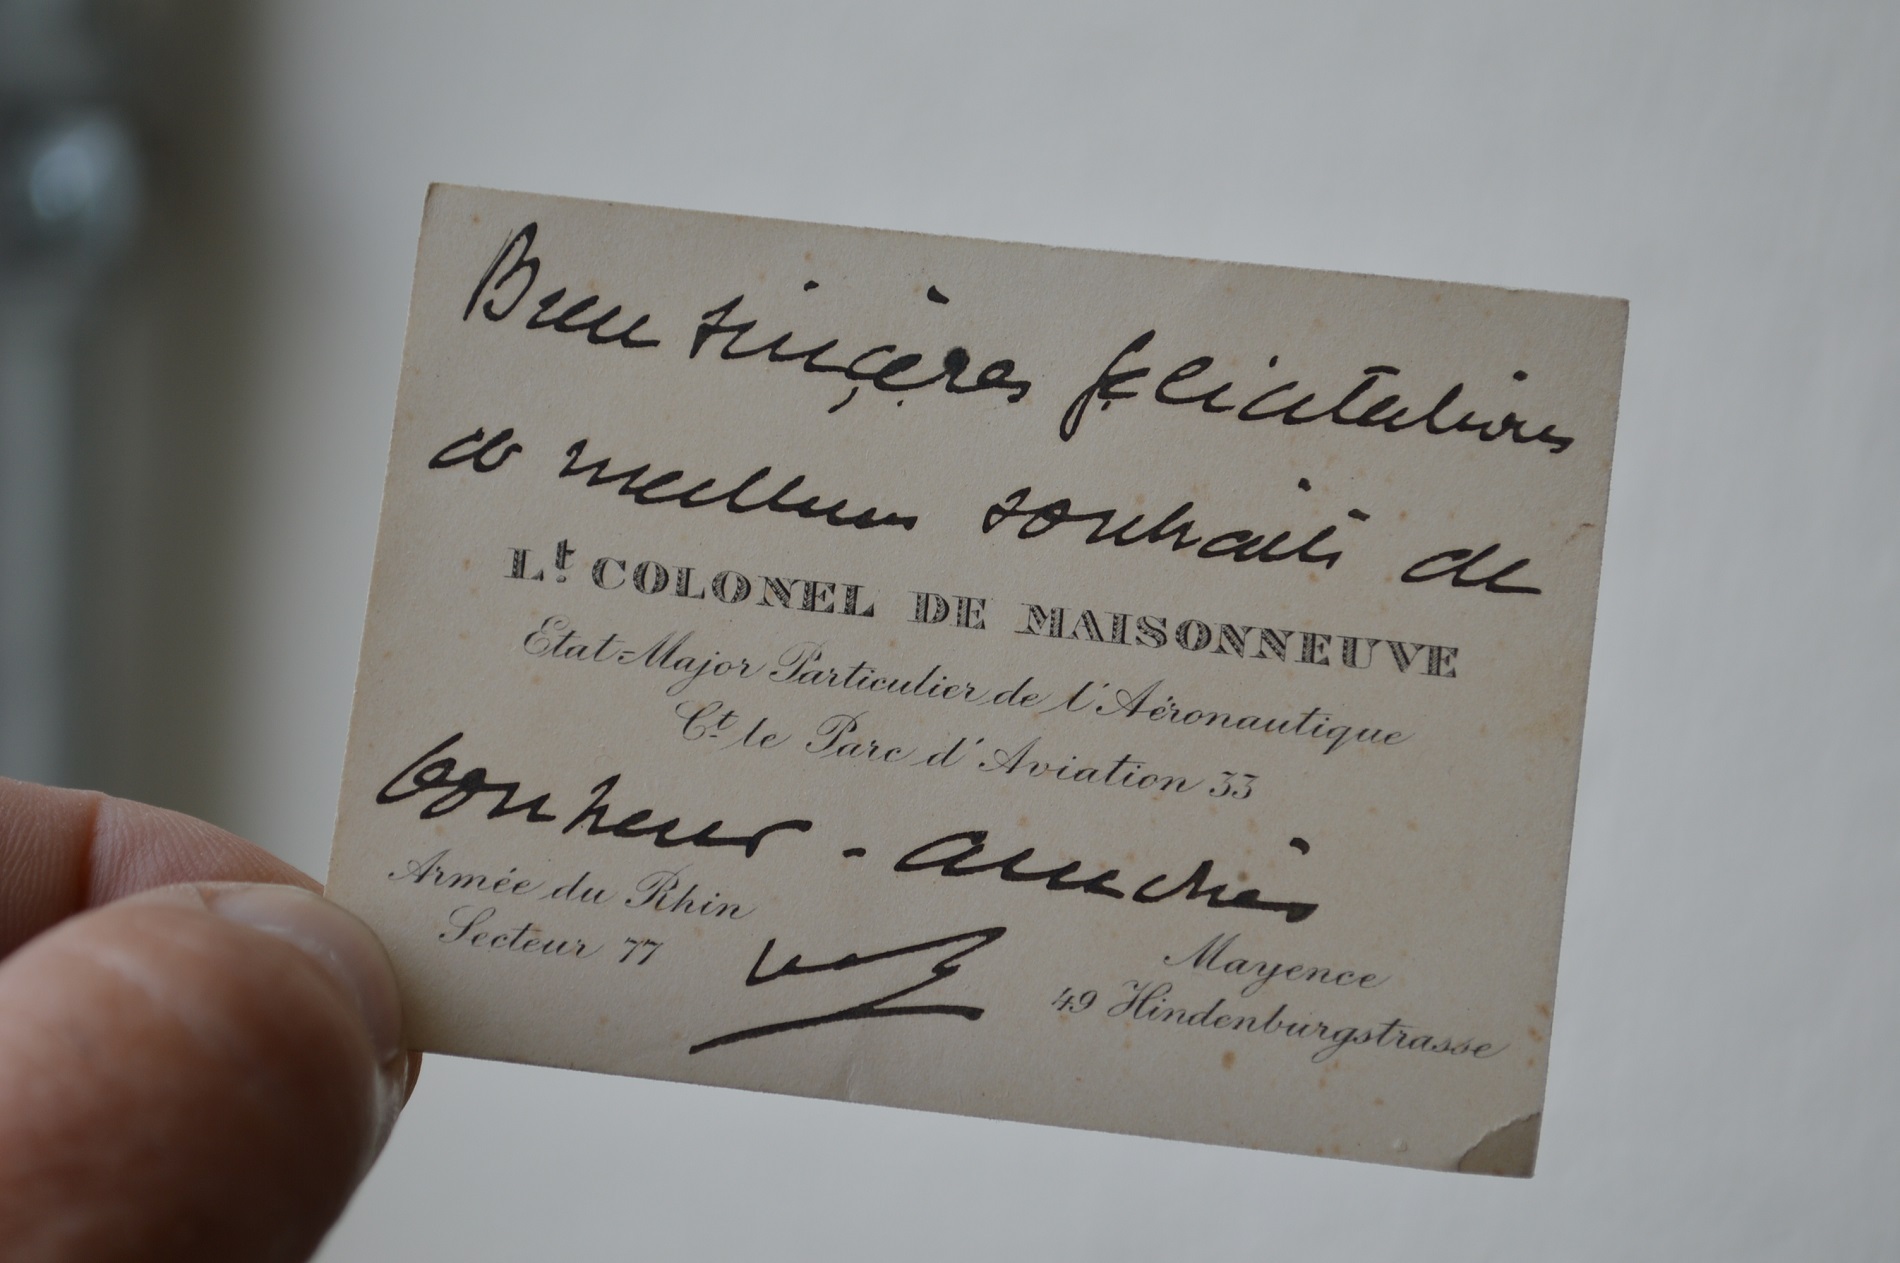 Bien sinçères félicitations
et meilleurs souhaits de
Lt. COLONEL DE MAISONNEUVE
Etat-Major Particulier de l'Aéronautique
Ct le Parc d'Aviation 33
bonheur - amitiés
Armée du Rhin
Secteur 77
Mayence
49 Hindenburgstrasse